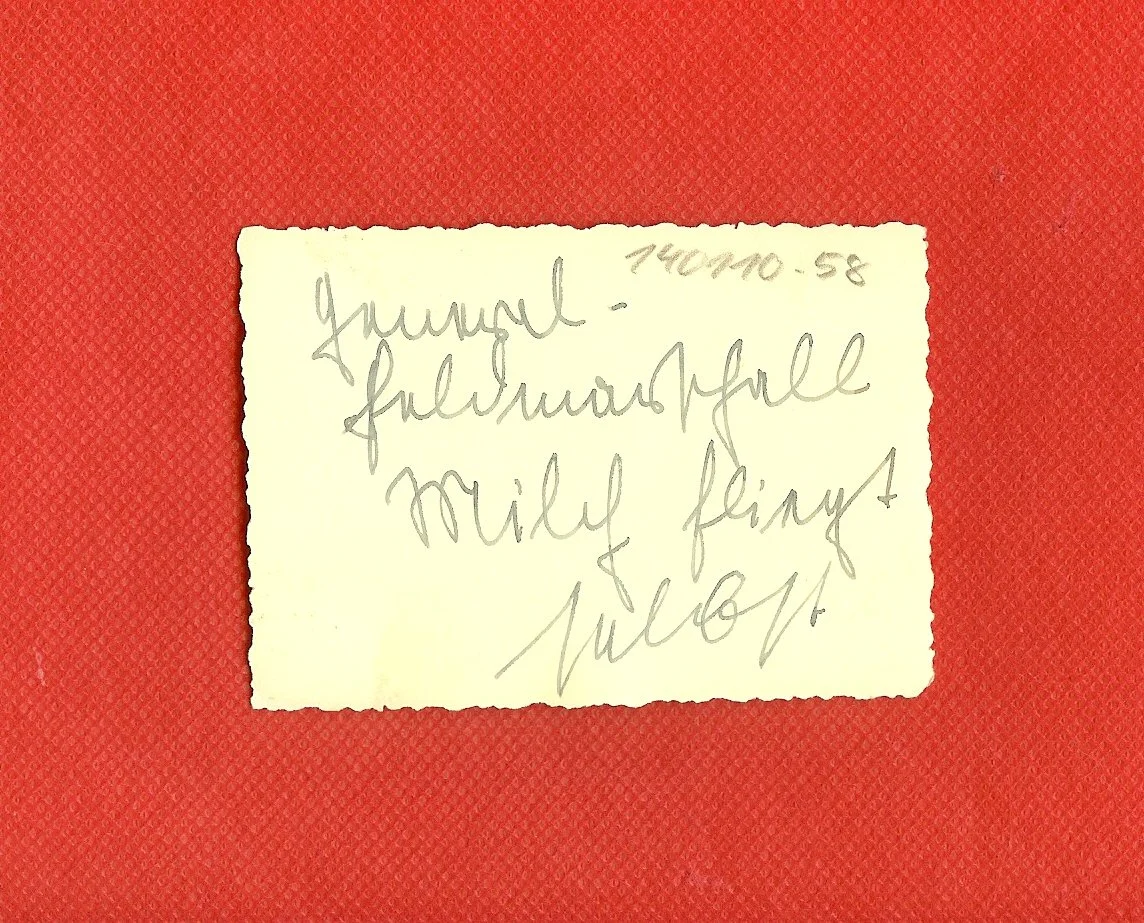 140110-58
General-
feldmarschall
Milch fliegt
selbst